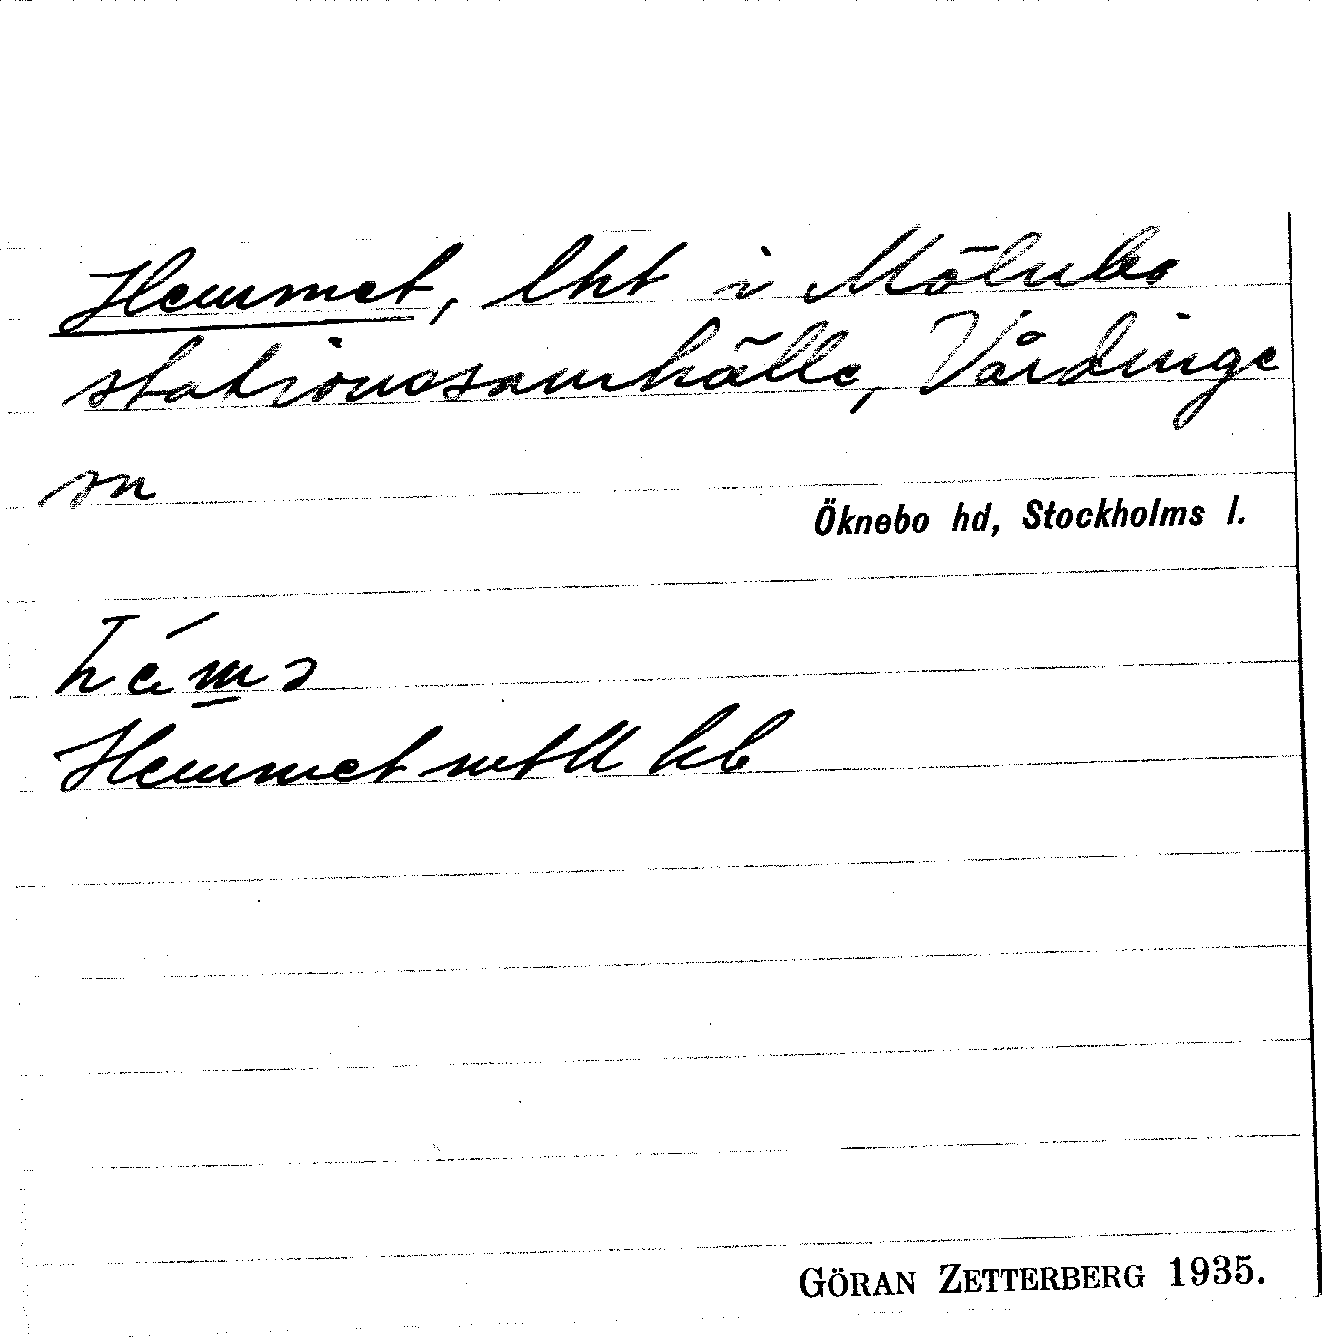 Hemmet, lht i Mölnbo
stationssamhälle, Vårdinge
sn
Öknebo hd, Stockholms l.
Hemmet mtll kb
GÖRAN ZETTERBERG 1935.